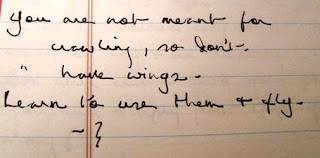 you are not meant for
crawling, so don't.
" have wings.
Learn to use them & fly.